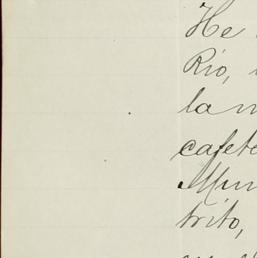 He
Rio,
la
cafete
Mun
trito,